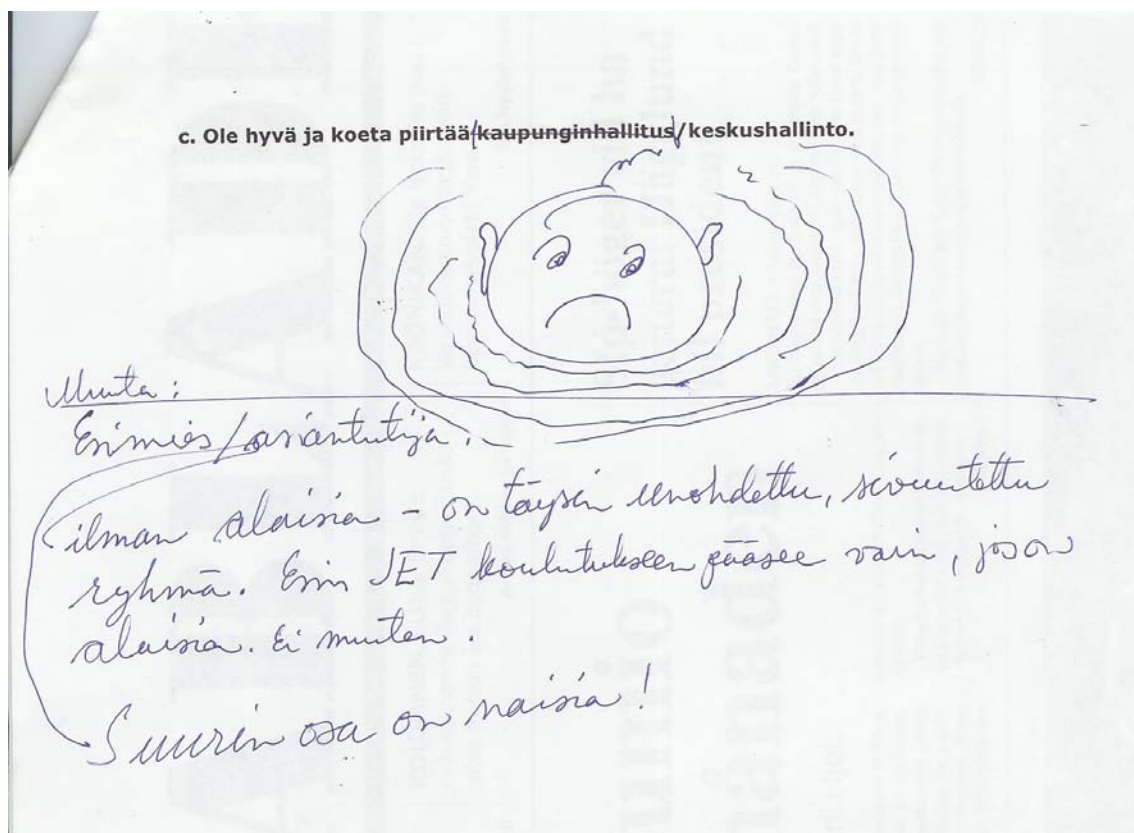 c. Ole hyvä ja koeta piirtää/kaupunginhallitus/keskushallinto.
Muuta:
Esimies/asiantutija.
ilman alaisia – on täysin unohdettu, sivuutettu
ryhmä. Esim JET koulutukseen pääsee vain, jos on
alaisia. Ei muuten.
Suurin osa on naisia!